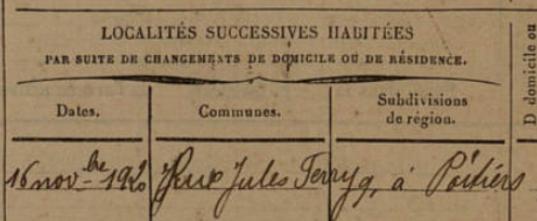 LOCALITÉS SUCCESSIVES HABITÉES
PAR SUITE DE CHANGEMENTS DE DOMICILE OU DE RÉSIDENCE.
Dates.
Communes.
Subdivisions
de région.
D domicile ou
16 novbre 1920 Rue Jules Ferry 9, à Poitiers